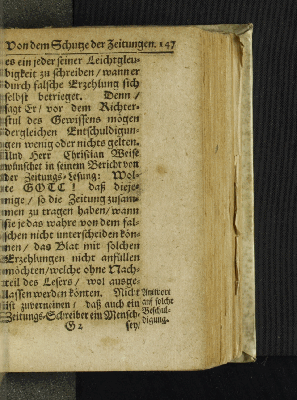 Von dem Schutze der Zeitungen. 147
es ein jeder seiner Leichtgleu-
bigkeit zu schreiben / wann er
durch falsche Erzehlung sich
selbst betrieget. Denn /
sagt Er / vor dem Richter-
stul des Gewissens mögen
dergleichen Entschuldigun-
gen wenig oder nichts gelten.
Und Herr Christian Weise
wünschet in seinem Bericht von
der Zeitungs-Lesung: Wol-
te GOTT! daß dieje-
nige / so die Zeitung zusam-
men zu tragen haben / wann
sie jedas wahre von dem fal-
schen nicht unterscheiden kön-
nen / das Blat mit solchen
Erzehlungen nicht anfüllen
möchten / welche ohne Nach-
teil des Lesers / wol ausge-
lassen werden könten. Nicht
ist zuverneinen / daß auch ein
Zeitungs-Schreiber ein Mensch
Antwort
auf solche
Beschul-
digung.
G 2 sey /